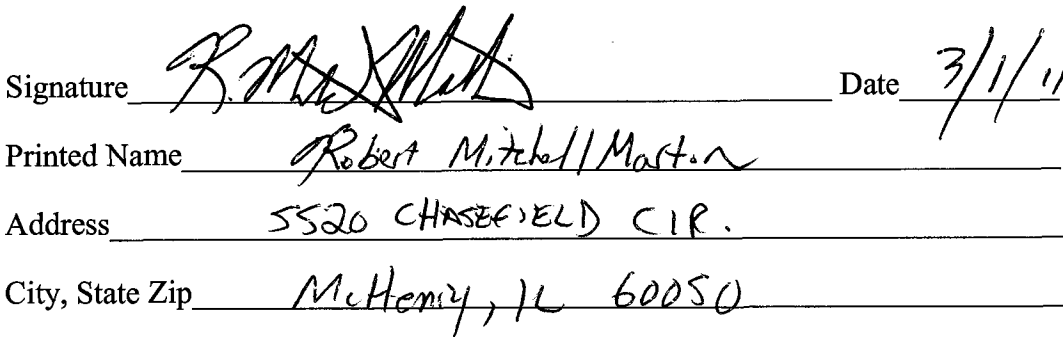 Signature R. Mitchell Martin Date 3/1/11
Printed Name Robert Mitchell Martin
Address 5520 CHASEFIELD CIR.
City, State Zip McHenry, IL 60050